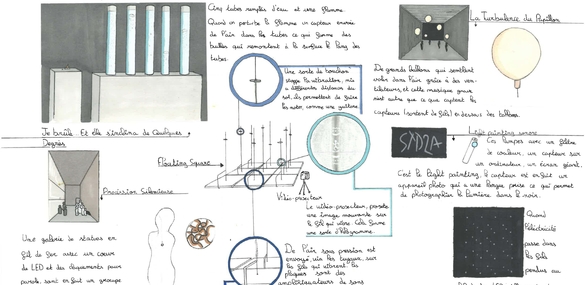 Cinq tubes remplis d'eau et une flamme.
Quand on perturbe la flamme un capteur envoie
de l'air dans les tubes ce qui forme des
bulles qui remontent à la surface le long des
tubes.
Je brûle. Et elle s'inclina de Quelques
Degrés
Floating Square
Procession Silencieuse
Une galerie de statues en
fil de fer avec un cœur
de LED et des
parole, sont en fait un groupe
Une sorte de
stoppe la vibration, mis
à différentes distances du
sol, ils permettent de faire
les notes, comme une guitare.
Vidéo-projecteur
Le vidéo-projecteur, projette
une image mouvante sur
le fil qui vibre. Cela forme
une sorte d'hologramme.
De l'air sous pression est
envoyé, via les tuyaux, sur
les fils qui vibrent. Les
plaques sont des
amplificateurs de sons
La Turbulence du Papillon
De grands ballons qui semblent
voler dans l'air grâce à des ven-
tilateurs, et cette musique grave
n'est autre que ce que captent les
capteurs (sortent de fils) en dessous des ballons.
Light painting
Ces lampes avec un filtre
de couleur, un capteur sur
un ordinateur, un écran géant.
C'est le light painting, le capteur est en fait un
appareil photo qui a une longue pose ce qui permet
de photographier la lumière dans le noir.
Quand
l'électricité
passe dans
les fils
pendus au